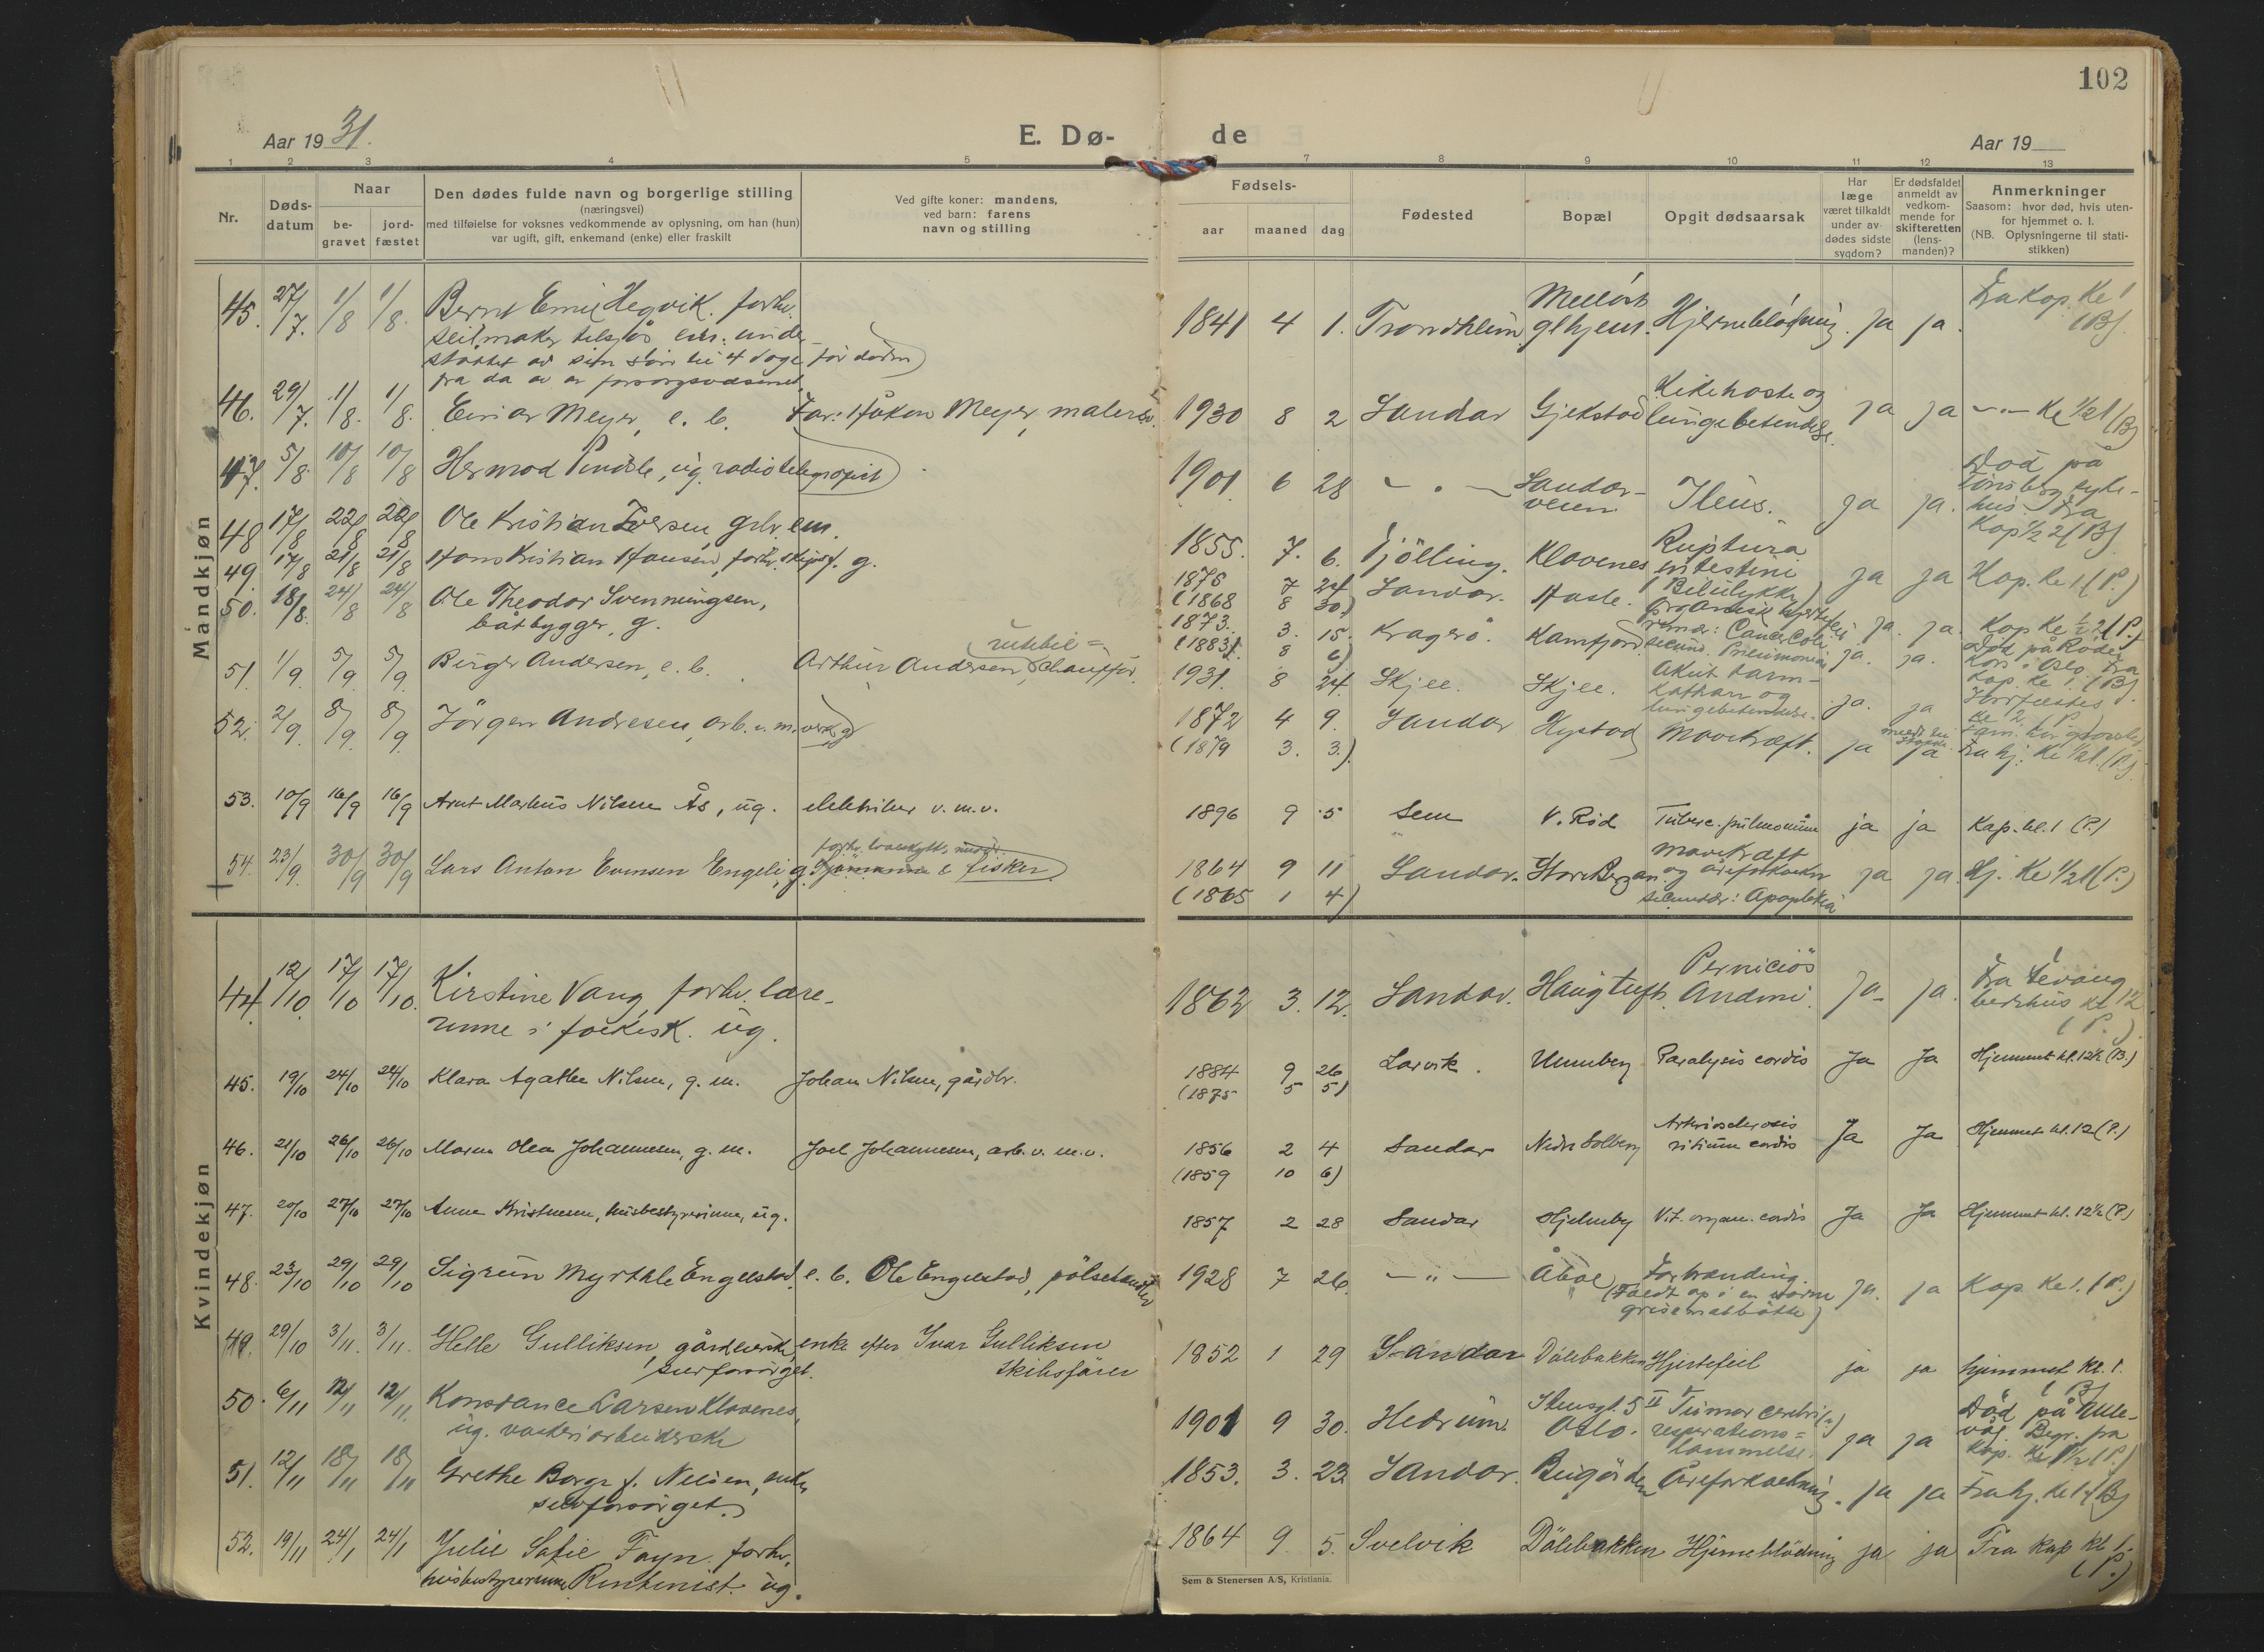 102
Aar 1931.
E. Dø-
de
Aar 19
1 2 3 4 5 7 8 9 10 11 12 13
Nr.
Døds-
datum
Naar
be-
gravet
jord-
fæstet
Den dødes fulde navn og borgerlige stilling
(næringsvei)
med tilføielse for voksnes vedkommende av oplysning, om han (hun)
var ugift, gift, enkemand (enke) eller fraskilt
Ved gifte koner: mandens,
ved barn: farens
navn og stilling
Fødsels-
aar maaned dag
Fødested
Bopæl
Opgit dødsaarsak
Har
læge
været tilkaldt
under av-
dødes sidste
sygdom?
Er dødsfaldet
anmeldt av
vedkom-
mende for
skifteretten
(lens-
manden)?
Anmerkninger
Saasom: hvor død, hvis uten-
for hjemmet o. l.
(NB. Oplysningerne til stati-
stikken)
Mandkjøn
45. 27/7. 1/8 1/8. Bernt Emil Hegvik. forhv. 1841 4 1. Trondheim Hjerneblødning. Ja ja. Fra Kap. Ke 1 (B).
seilmaker tilsjøs em. under-
støttet av sin til 4 dage før døden
fra da av av forsorgsvæsenet
46. 29/7. 1/8. 1/8. Einar Meyer, e. b. Far: Håkon Meyer, 1930 8 2 Sandar Gjekstad Kikhoste og
lungebetendelse. ja ja — " — Ke 1/2 1 (B)
47. 5/8. 10/8 10/8 Hermod Pindsle, ug. radiotelegrafist 1901 6 28 — " — Sandar-
veien. Ileus. ja ja. Død på
Tønsberg syke-
hus. Fra
Kap 1/2 2 (B)
48 17/8 22/8 22/8 Ole Kristian Iversen, gbr. em. 1855. 7. 6. Tjölling. Klavenes Ruptura
intestini
(Bilulykke) ja ja Kap. Ke 1 (P.)
49. 17/8 21/8 21/8 Hans Kristian Hansen, forhv. skipsf. g. 1876 7 24 Sandar. Haste.
(1868 8 30) ja. ja. Kap Ke 1/2 2 (P.)
50. 18/8. 24/8 24/8 Ole Theodor Svenningsen,
båtbygger, g. 1873. 3. 15. Kragerö. Kamfjord Primær: Cancer Coli
secund. Pneumoni ja. ja.
(1883. 8 6)
51. 1/9. 5/9 5/9. Birger Andersen, e. b. Arthur Andersen, (rutebil=) chauffør. 1931. 8 24. Skjee. Skjee. Akut tarm-
katharr og
lungebetendelse. ja. ja
52. 2/9. 8/9. 8/9. Jörgen Andresen, arb. v. m. verk. g) 1872 4 9. Sandar Hystad Mavekræft. ja ja Fra hj. Ke 1/2 1. (P.)
(1879 3. 3.)
53. 10/9 16/9 16/9 Arnt Markus Nilsen Ås, ug. elektriker v. m. v. 1896 9 5 Sem V. Rød Tuberc. pulmonum ja ja Kap. kl. 1 (P.)
54. 23/9. 30/9 30/9 Lars Anton Evensen Engeli, g. Sjömann & fisker 1864 9 11 Sandar. Store Bergan Mavekræft
og åreforkalkn
(1865 1 4) secundær: Apoplexia ja ja. Hj. Ke 1/2 1 (P.)
Kvindekjøn
44. 12/10. 17/10 17/10. Kirstine Vang, forhv. lære-
rinne i folkesk. ug. 1862 3. 12. Sandar. Haugtuft. Perniciös
Anämi. Ja ja. Fra
bedehus kl 12
(P.)
45. 19/10 24/10 24/10 Klara Agathe Nilsen, g. m. Johan Nilsen, gårdbr. 1884 9 26 Larvik. Unneberg Paralysis cordis Ja Ja Hjemmet kl. 12½ (B.)
(1875 5 5)
46. 21/10 26/10 26/10 Maren Olea Johannesen, g. m. Joel Johannesen, arb. v. m. v. 1856 2 4 Sandar Nedre Solberg Arteriosclerosis
vitium cordis Ja Ja Hjemmet kl. 12 (P.)
(1859 10 6)
47. 20/10 27/10 27/10 Anne Kristensen, husbestyrerinne, ug. 1857 2 28 Sandar Hjelmby Vit. organ. cordis Ja Ja Hjemmet kl. 12½ (P.)
48. 23/10 29/10 29/10 Sigrun Myrthle Engelstad, e. b. Ole Engelstad, pölsehandler 1928 7 26. — " — Åbol Forbrænding.
(Faldt op i en varm
grisematbötte) Ja. ja Kap. Ke 1. (P.)
49. 29/10 3/11. 3/11. Helle Gulliksen, gårdeierske, enke efter Ivar Gulliksen
selvforsörget. skibsfører 1852 1 29 Sandar Dölebakken Hjertefeil ja ja hjemmet Kl. 1.
(B)
50. 6/11 12/11 12/11. Konstance Larsen Klavenes,
ug. vaskeriarbeiderske 1901 9 30. Hedrum. 5 II
Oslo. Tumor cerebri
respirations=
lammelse. ja ja Død på Ulle-
vål. Begr. fra
Kap. Ke 1½ (P.)
51. 12/11 18/11 18/11 Grethe Borge f. Nilsen, enke
selvforsörget. 1853. 3. 23 Sandar. Bugården Åreforkalkning. ja ja Fra hj. Ke 1 (B)
52. 19/11 24/11 24/11 Julie Sofie Fayn. forhv.
husbestyrerinne, Rentenist. ug. 1864 9. 5. Svelvik Dölebakken Hjerneblödning ja ja Fra Kap Kl 1.
(P.)
Sem & Stenersen A/S, Kristiania.